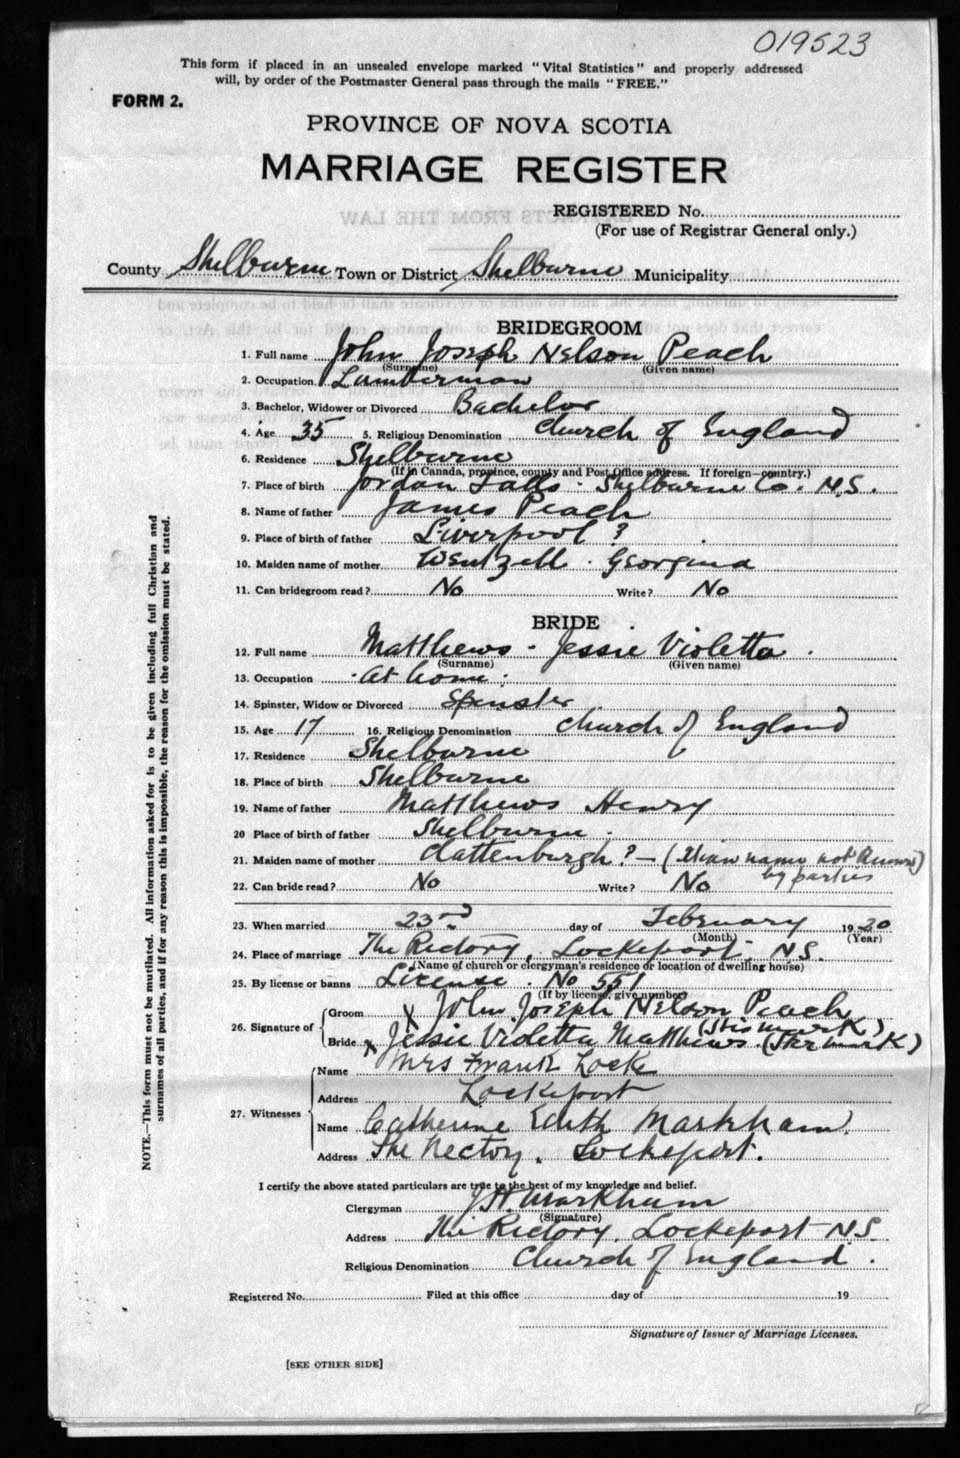 019523
This form if placed in an unsealed envelope marked "Vital Statistics" and properly addressed
will, by order of the Postmaster General pass through the mails "FREE."
FORM 2.
PROVINCE OF NOVA SCOTIA
MARRIAGE REGISTER
REGISTERED No.
(For use of Registrar General only.)
County Shelburne Town or District Shelburne Municipality
BRIDEGROOM
1. Full name John Joseph Nelson Peach
(Surname) (Given name)
2. Occupation Lumberman
3. Bachelor, Widower or Divorced Bachelor
4. Age 35 5. Religious Denomination Church of England
6. Residence Shelburne
(If in Canada, province, county and Post Office address. If foreign—country.)
7. Place of birth Jordan Falls - Shelburne Co. N.S.
8. Name of father James Peach
9. Place of birth of father Liverpool ?
10. Maiden name of mother Wentzell . Georgina
11. Can bridegroom read? No Write? No
BRIDE
12. Full name Matthews - Jessie Violetta
(Surname) (Given name)
13. Occupation At home
14. Spinster, Widow or Divorced Spinster
15. Age 17 16. Religious Denomination Church of England
17. Residence Shelburne
18. Place of birth Shelburne
19. Name of father Matthews Henry
20 Place of birth of father Shelburne
21. Maiden name of mother Clattenburgh ? — ( name not known)
by parties
22. Can bride read? No Write? No
23. When married 23rd day of February 1920
(Month) (Year)
24. Place of marriage The Rectory, Lockeport. N.S.
(Name of church or clergyman's residence or location of dwelling house)
25. By license or banns License . No 551
(If by license, give number)
26. Signature of Groom X John Joseph Nelson Peach
(His mark)
Bride X Jessie Violetta Matthews (Her mark)
27. Witnesses Name Mrs Frank Locke
Address Lockeport
Name Catherine Edith Markham
Address The Rectory, Lockeport.
I certify the above stated particulars are true to the best of my knowledge and belief.
Clergyman Markham
(Signature)
Address The Rectory, Lockeport N.S.
Religious Denomination Church of England.
Registered No. Filed at this office day of 19
Signature of Issuer of Marriage Licenses.
[SEE OTHER SIDE]
NOTE.—This form must not be mutilated. All information asked for is to be given including full Christian and
surnames of all parties, and if for any reason this is impossible, the reason for the omission must be stated.